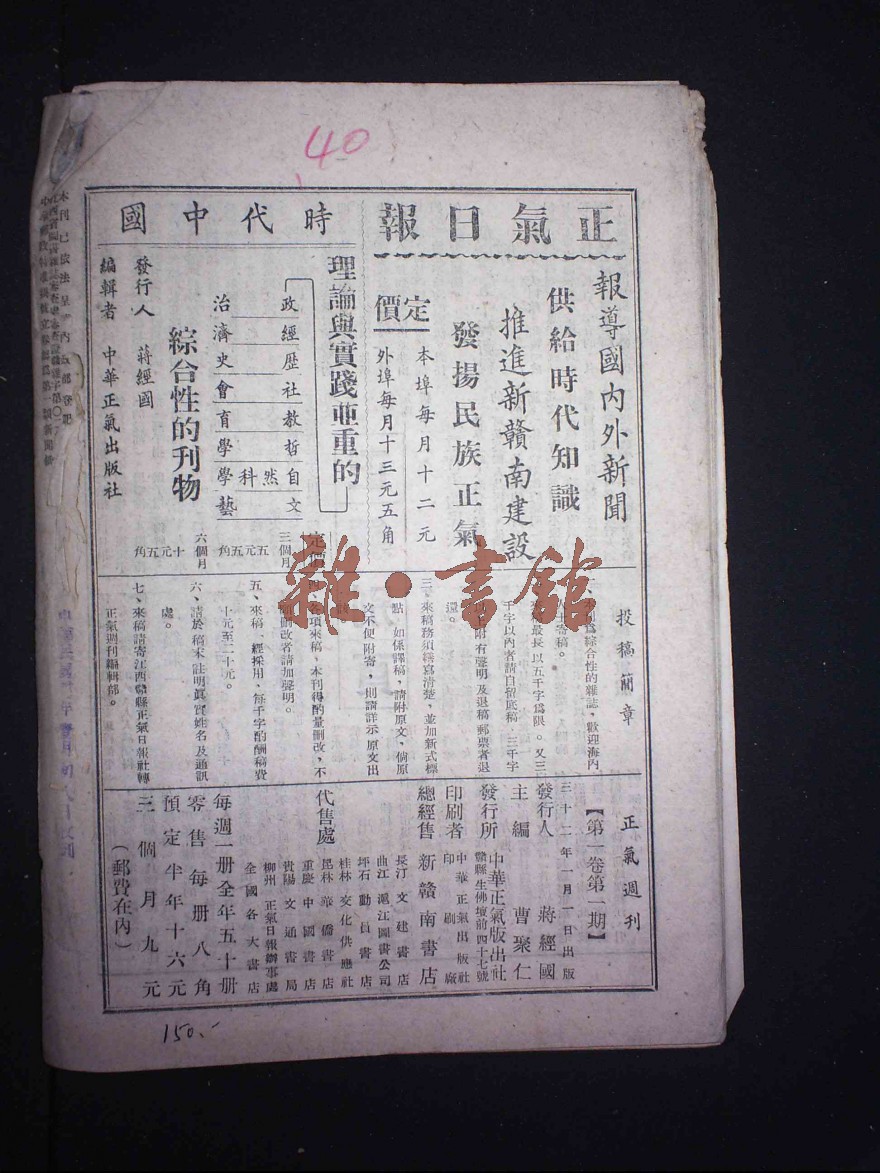 40
正氣日報
報導國內外新聞
供給時代知識
推進新贛南建設
發揚民族正氣
定價
本埠每月十二元
外埠每月十三元五角
時代中國
理論與實踐並重的
政治
經濟
歷史
社會
教育
哲學
自然科學
文藝
綜合性的刊物
發行人 蔣經國
編輯者 中華正氣出版社
三個月 五元五角
六個月 十元五角
投稿簡章
為綜合性的雜誌，歡迎海內
寄稿。
最長以五千字為限。又三
千字以內者請自留底稿，三千字
以上附有聲明及退稿郵票者退
還。
三、來稿務須繕寫清楚，並加新式標
點，如係譯稿，請附原文，倘原
文不便附寄，則請詳示原文出
各項來稿，本刊得酌量刪改，不
願刪改者請加聲明。
五、來稿一經採用，每千字酌酬稿費
十元至二十元。
六、請於稿末註明眞實姓名及通訊
處。
七、來稿請寄江西贛縣正氣日報社轉
正氣週刊編輯部。
正氣週刊
【第一卷第一期】
三十二年一月一日出版
發行人 蔣經國
主編 曹聚仁
發行所 中華正氣出版社
贛縣生佛壇前四十七號
印刷者 中華正氣出版社印刷廠
總經售 新贛南書店
代售處
長汀 文建書店
曲江 滬江圖書公司
坪石 動員書店
桂林 文化供應社
昆林 華僑書店
重慶 中國書店
貴陽 文通書局
柳州 正氣日報辦事處
全國各大書店
每週一册全年五十册
零售每册八角
預定半年十六元
三個月九元
（郵費在內）
本刊已依法呈
雜·書館
150.-